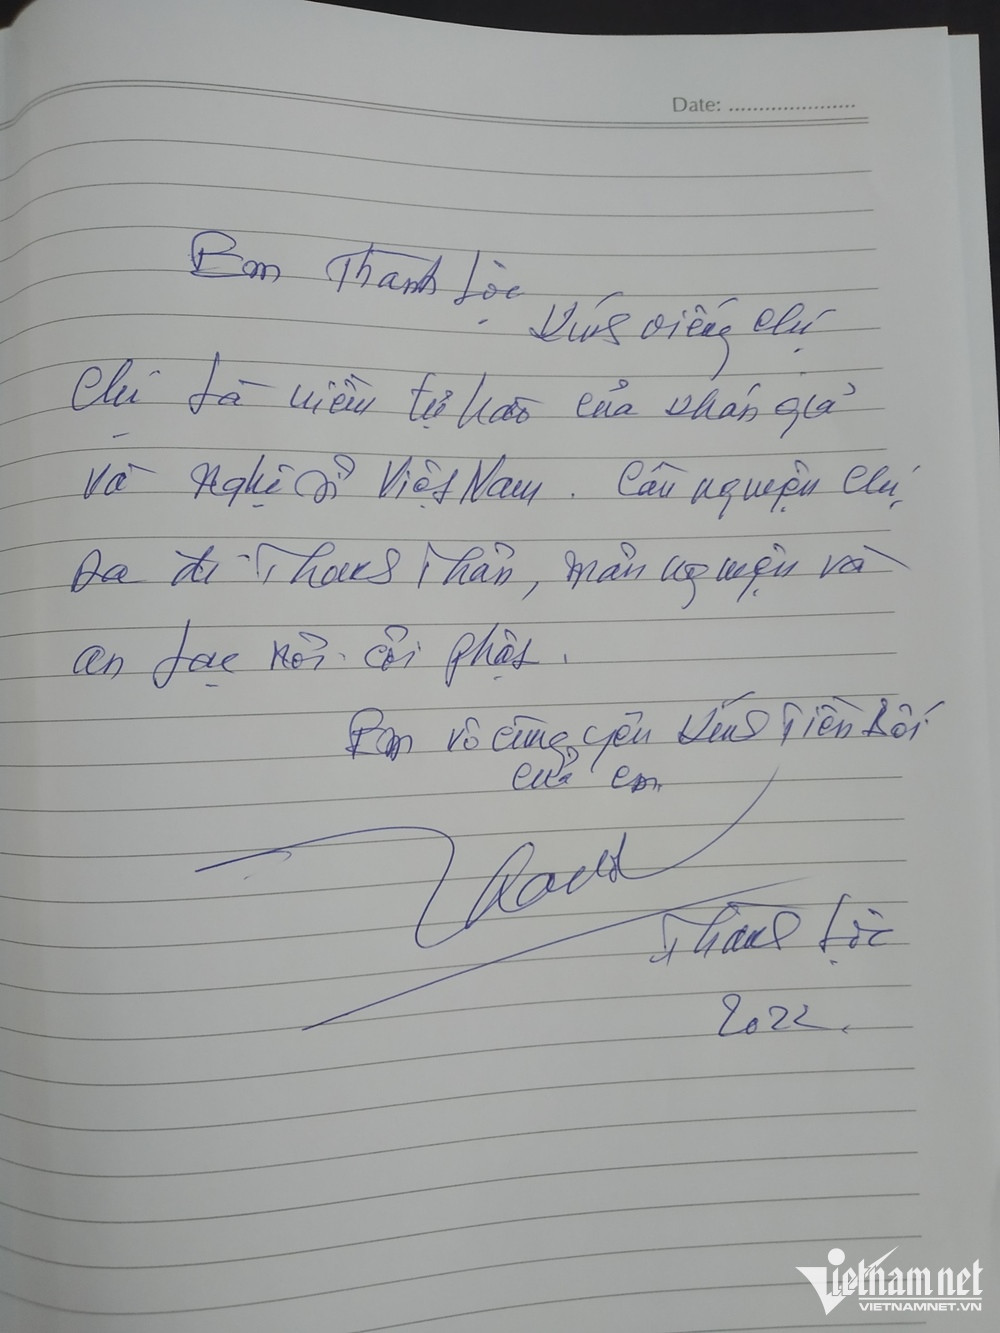 Date: .....................
Em Thành Lộc
Kính viếng chị
Chị là niềm tự hào của khán giả
và Nghệ sĩ Việt Nam. Cầu nguyện chị
ra đi Thanh Thản, mãn nguyện và
an lạc nơi cõi phật.
Em vô cùng yêu kính Tiền Bối
của em
Thành Lộc
2022.
Vietnamnet
VIETNAMNET.VN